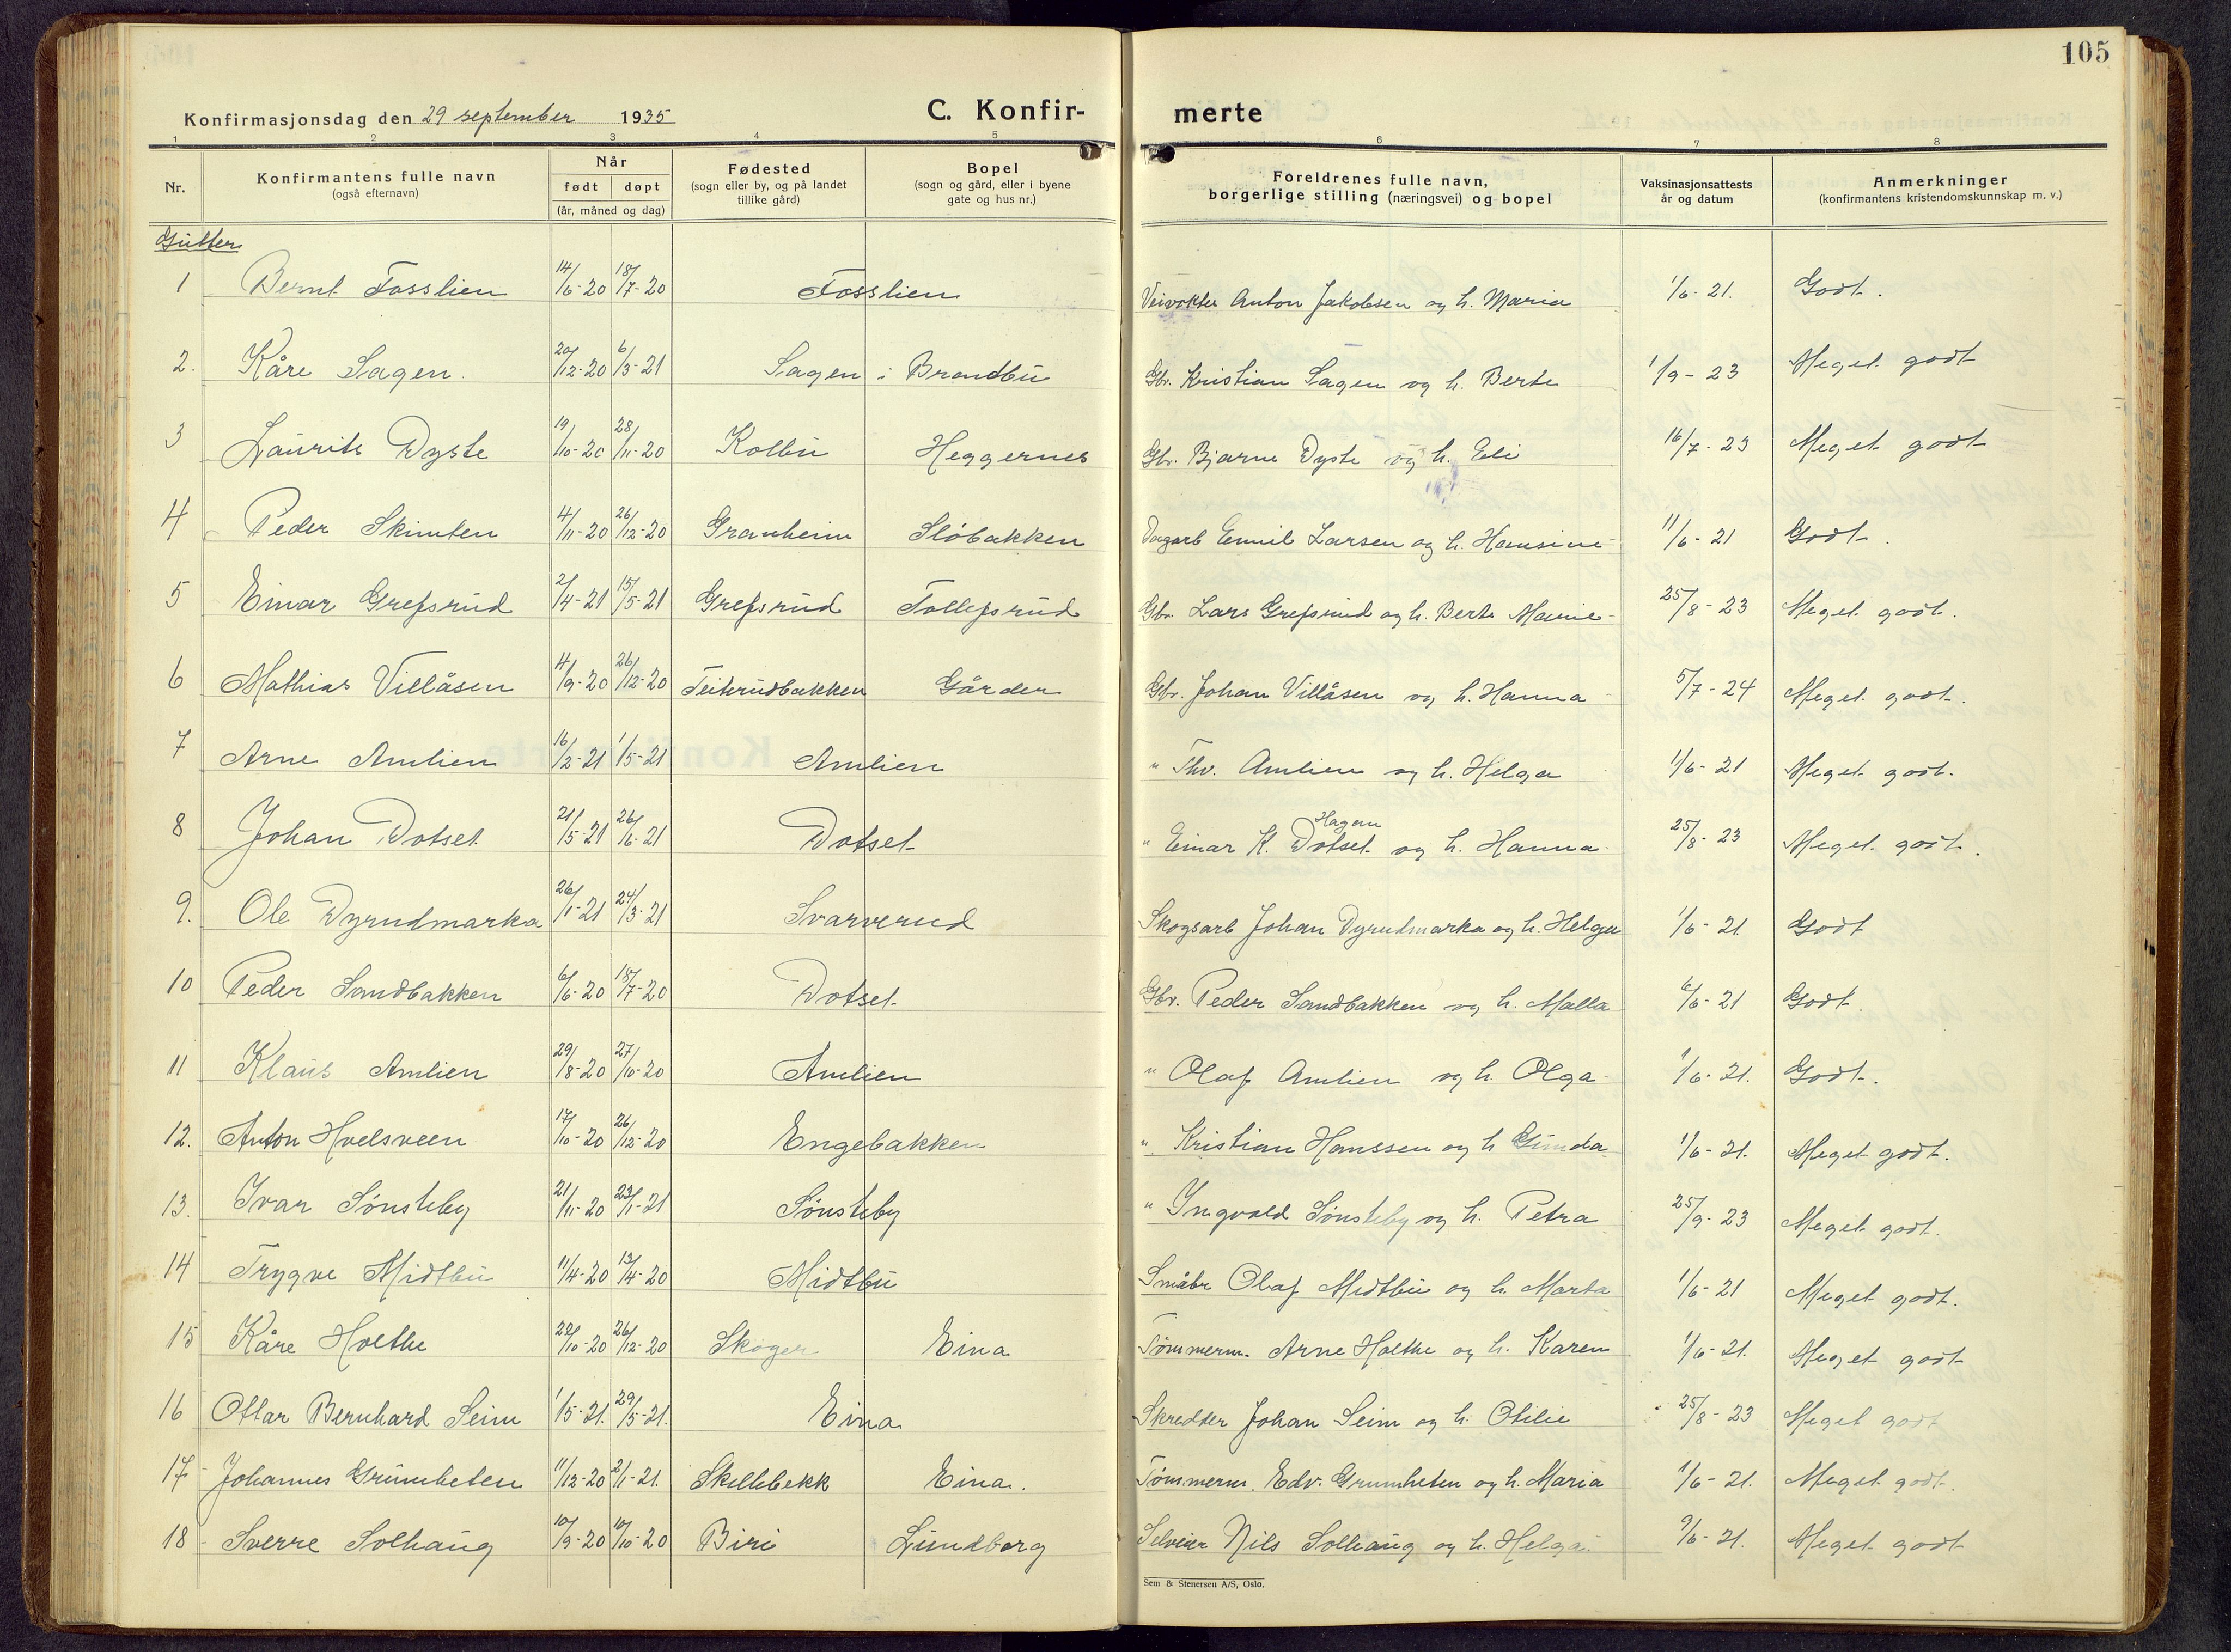 105
Konfirmasjonsdag den 29 september 1935 C. Konfir- merte
1 2 3 4 5 6 7 8
Nr. Konfirmantens fulle navn (også efternavn) Når født døpt (år, måned og dag) Fødested (sogn eller by, og på landet tillike gård) Bopel (sogn og gård, eller i byene gate og hus nr.) Foreldrenes fulle navn, borgerlige stilling (næringsvei) og bopel Vaksinasjonsattests år og datum Anmerkninger (konfirmantens kristendomskunnskap m. v.)
Gutter
1 Bernt Fosslien 14/6-20 18/7-20 Fosslien Veivokter Anton Jakobsen og h. Maria 1/6-21. Godt.
2. Kåre Sagen. 20/12-20 6/3-21 Sagen i Brandbu Gbr. Kristian Sagen og h. Berte 1/9-23 Meget godt
3 Laurits Dyste 19/10-20 28/11-20 Kolbu Heggernes Gbr. Bjarne Dyste og h. Eli 16/7-23 Meget godt
4 Peder Skimten 4/11-20 26/12-20 Granheim Slåbakken Dagarb Emil Larsen og h. Hansine 11/6-21 Godt.
5 Einar Grefsrud 2/4-21 15/5-21 Grefsrud Tollefsrud Gbr. Lars Grefsrud og h. Berte Marie 25/8-23 Meget godt.
6 Mathias Villåsen 4/9-20 26/12-20 Teiterudbakken Gården Gbr. Johan Villåsen og h. Hanna 5/7-24 Meget godt.
7 Arne Amlien 16/2-21 1/5-21 Amlien " Thv. Amlien og h. Helga 1/6-21 Meget godt.
8 Johan Dotset 21/5-21 26/6-21 Dotset " Einar K. Dotset Hagen og h. Hanna 25/8-23 Meget godt.
9. Ole Dyrudmarka 26/1-21 24/3-21 Svarverud Skogsarb Johan Dyrudmarka og h. Helga 1/6-21 Godt
10 Peder Sandbakken 6/6-20 18/7-20 Dotset Gbr. Peder Sandbakken og h. Malla 6/6-21 Godt.
11 Klaus Amlien 29/8-20 27/10-20 Amlien " Olaf Amlien og h. Olga 1/6-21. Godt.
12. Anton Hvelsveen 17/10-20 26/12-20 Engebakken " Kristian Hanssen og h Gunda 1/6-21. Meget godt.
13. Ivar Sønsteby 21/11-20 23/1-21 Sønsteby " Yngvald Sønsteby og h. Petra 25/9-23 Meget godt.
14 Trygve Midtbu 11/4-20 13/4-20 Midtbu Småbr Olaf Midtbu og h. Marta 1/6-21 Meget godt.
15 Kåre Holthe 22/10-20 26/12-20 Skoger Eina Tømmerm. Arne Holthe og h. Karen 1/6-21. Meget godt
16 Ottar Bernhard Seim 1/5-21. 29/5-21. Eina Skredder Johan Seim og h. Otilie 25/8-23 Meget godt
17 Johannes Grumheten 11/12-20 2/1-21. Skillebekk Eina. Tømmerm. Edv. Grumheten og h. Maria 1/6-21. Meget godt.
18 Sverre Solhaug 10/9-20 10/10-20 Biri Lundberg Selveier Nils Solhaug og h. Helga 9/6-21. Meget godt
Sem & Stenersen A/S, Oslo.